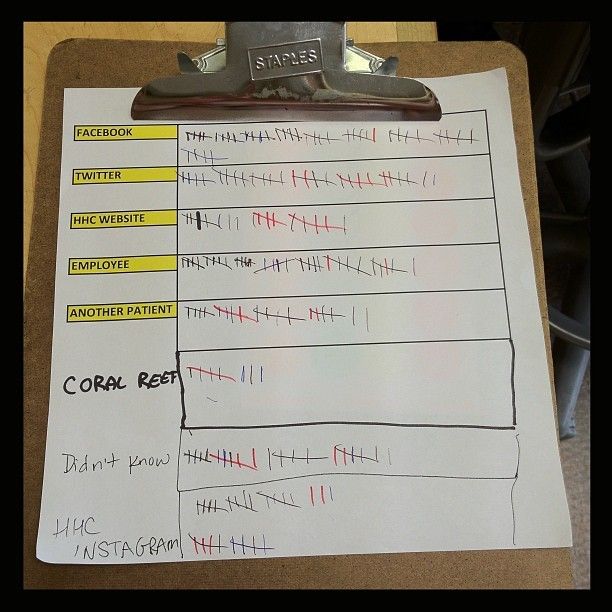 STAPLES
FACEBOOK
TWITTER
HHC WEBSITE
EMPLOYEE
ANOTHER PATIENT
CORAL REEF
Didn't know
HHC
INSTAGRAM